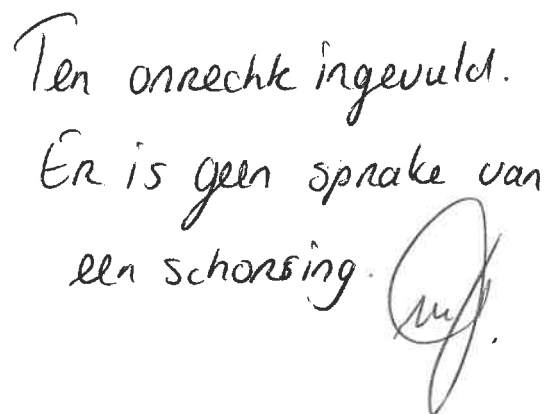 Ten onrechte ingevuld.
Er is geen sprake van
een schorsing.